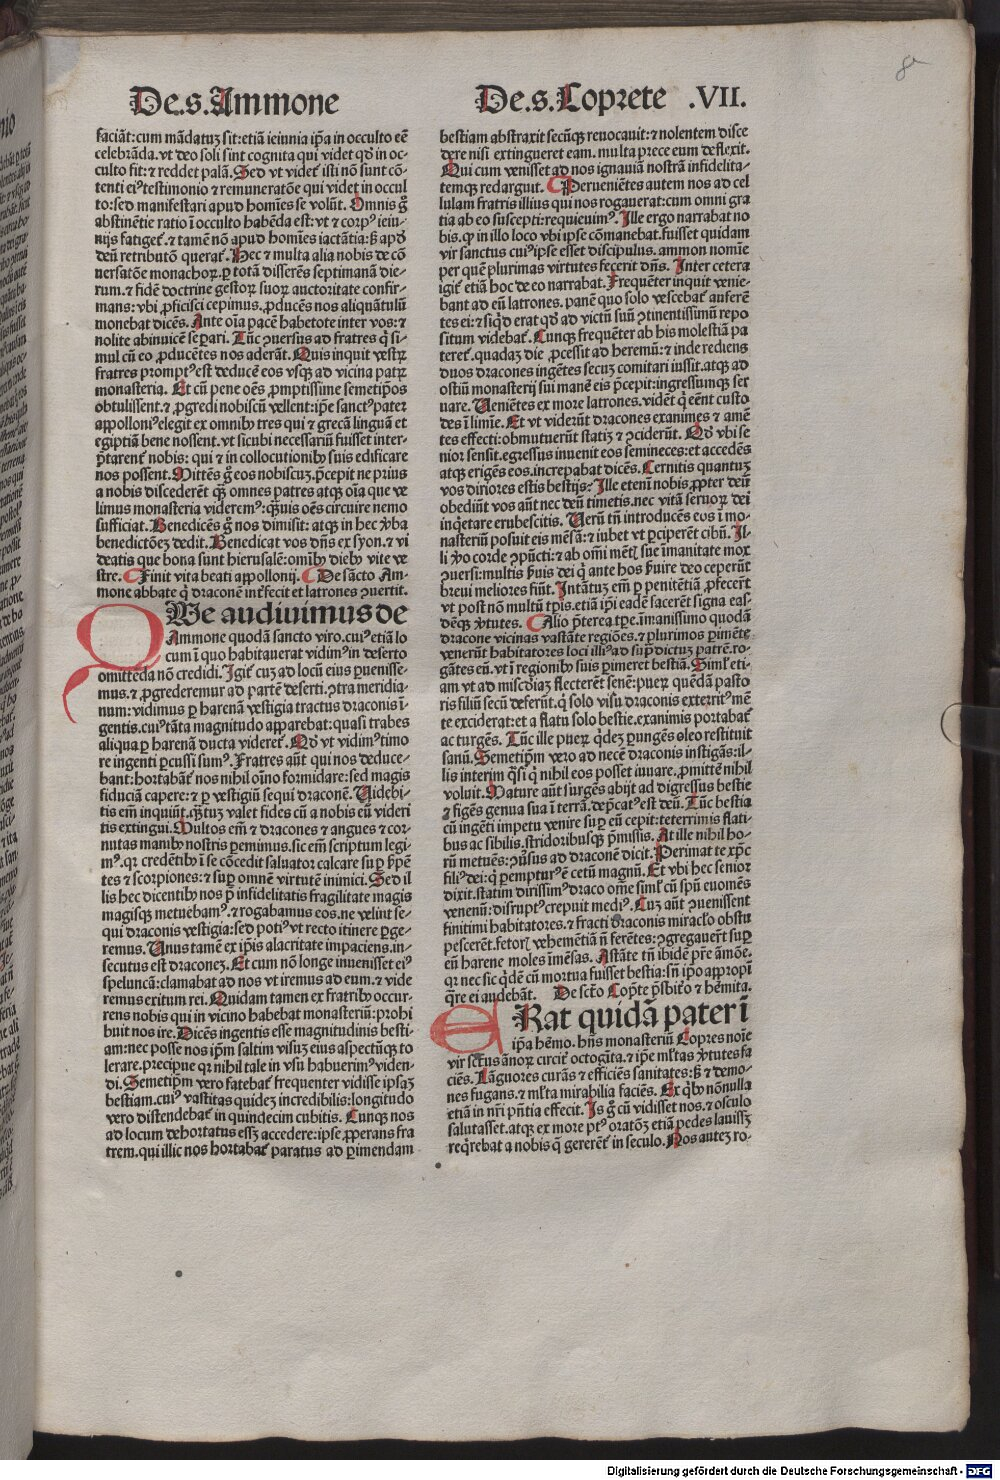 De.s.Ammone
faciāt: cum mādatuʒ sit: etiā ieiunia ip̄a in occulto eē
celebrāda. vt deo soli sint cognita qui videt qd̄ in oc-
culto fit: ⁊ reddet palā. Sed vt videt᷑ isti nō sunt cō-
tenti ei᷒ testimonio ⁊ remuneratōe qui videt in occul
to: sed manifestari apud homīes se volūt. Omnis g̊
abstinētie ratio ī occulto habēda est: vt ⁊ corp᷒ ieiu-
nijs fatiget᷑. ⁊ tamē nō apud homīes iactātia: ß apd̄
deū retributō querat᷑. Hec ⁊ multa alia nobis de cō
uersatōe monachoꝝ. ꝑ totā disserēs septimanā die-
rum. ⁊ fidē doctrine gestoꝝ suoꝝ auctoritate confir-
mans: vbi ꝓficisci cepimus. ꝓducēs nos aliquātulū
monebat dicēs. Ante oīa pacē habetote inter vos: ⁊
nolite abinuicē seꝑari. Tūc ꝯuersus ad fratres q̇ si-
mul cū eo ꝓducētes nos aderāt. Quis inquit vestꝝ
fratres prompt᷒ est deducē eos vsqꝫ ad vicina patꝝ
monasteria. Et cū pene oēs ꝓmptissime semetip̄os
obtulissent. ⁊ ꝓgredi nobiscū vellent: ip̄e sanct᷒ pater
appolloni᷒ elegit ex omnibꝰ tres qui ⁊ grecā linguā et
egiptiā bene nossent. vt sicubi necessariū fuisset inter-
p̄tarent᷑ nobis: qui ⁊ in collocutionibꝰ suis edificare
nos possent. Mittēs g̊ eos nobiscuʒ. p̄cepit ne prius
a nobis discederēt qꝫ omnes patres atqꝫ oīa que ve
limus monasteria viderem᷒: qꝫuis oēs circuire nemo
sufficiat. Benedicēs g̊ nos dimisit: atqꝫ in hec v̓ba
benedictōeʒ dedit. Benedicat vos dn̄s ex syon. ⁊ vi
deatis que bona sunt hierusalē: omībꝰ diebꝰ vite ve
stre. Finit vita beati appollonij. De sācto Am-
mone abbate q̇ draconē int̓fecit et latrones ꝯuertit.
QUe audiuimus de
Ammone quodā sancto viro. cui᷒ etiā lo
cum ī quo habitauerat vidim᷒ in deserto
omittēda nō credidi. Igit᷑ cuʒ ad locū eius ꝑuenisse-
mus. ⁊ ꝓgrederemur ad partē deserti. ꝯtra meridia-
num: vidimus ꝑ harenā vestigia tractus draconis ī-
gentis. cui᷒ tāta magnitudo apparebat: quasi trabes
aliqua ꝑ harenā ducta videret᷑. Qd̄ vt vidim᷒ timo
re ingenti ꝑcussi sum᷒. Fratres aūt qui nos deduce-
bant: hortabāt᷑ nos nihil oīno formidare: sed magis
fiduciā capere: ⁊ ꝑ vestigiū sequi draconē. Videbi-
tis em̄ inquiūt. qꝫtuʒ valet fides cū a nobis eū videri
tis extingui. Multos em̄ ⁊ dracones ⁊ angues ⁊ cor-
nutas manibꝰ nostris ꝑemimus. sic em̄ scriptum legi-
m᷒. qꝛ credētibꝰ ī se cōcedit saluator calcare suꝑ ẜpē
tes ⁊ scorpiones: ⁊ suꝑ omnē virtutē inimici. Sed il
lis hec dicentibꝰ nos p̄ infidelitatis fragilitate magis
magisqꝫ metuebam᷒. ⁊ rogabamus eos. ne velint se-
qui draconis vestigia: sed poti᷒ vt recto itinere ꝑge-
remus. Unus tamē ex ip̄is alacritate impaciens. in-
secutus est draconeʒ. Et cum nō longe inuenisset ei᷒
speluncā: clamabat ad nos vt iremus ad eum. ⁊ vide
remus exitum rei. Quidam tamen ex fratribꝰ occur-
rens nobis qui in vicino habebat monasteriū: prohi
buit nos ire. Dicēs ingentis esse magnitudinis besti-
am: nec posse nos ip̄m saltim visuʒ eius aspectūqꝫ to
lerare. precipue qꝛ nihil tale in vsu habuerim᷒ viden-
di. Semetip̄m vero fatebat᷑ frequenter vidisse ipsaʒ
bestiam. cui᷒ vastitas quideʒ incredibilis: longitudo
vero distendebat᷑ in quindecim cubitis. Cunqꝫ nos
ad locum dehortatus essʒ accedere: ipse ꝓperans fra
trem. qui illic nos hortabat᷑ paratus ad ꝑimendam
De.s.Coprete .VII.
bestiam abstraxit secūqꝫ reuocauit: ⁊ nolentem disce
dere nisi extingueret eam. multa prece eum deflexit.
Qui cum venisset ad nos ignauiā nostrā infidelita-
temqꝫ redarguit. Peruenietēs autem nos ad cel
lulam fratris illius qui nos rogauerat: cum omni gra
tia ab eo suscepti: requieuim᷒. Ille ergo narrabat no
bis. qꝫ in illo loco vbi ipse cōmanebat. fuisset quidam
vir sanctus cui᷒ ipse esset discipulus. ammon nomīe
per quē plurimas virtutes fecerit dn̄s. Inter cetera
igit᷑ etiā hoc de eo narrabat. Frequēter inquit venie-
bant ad eū latrones. panē quo solo vescebat᷑ auferē
tes ei: ⁊ siq̇d erat qd̄ ad victū suū ꝯtinentissimū repo
situm videbat᷑. Cunqꝫ frequēter ab his molestiā pa
teret᷑. quadaʒ die ꝓcessit ad heremū: ⁊ inde rediens
duos dracones ingētes secuʒ comitari iussit. atqꝫ ad
ostiū monasterij sui manē eis p̄cepit: ingressumqꝫ ser
uare. Veniētes ex more latrones. vidēt q̇ eēnt custo
des ī limīe. Et vt viderūt dracones exanimes ⁊ amē
tes effecti: obmutuerūt statiʒ ⁊ ꝯciderūt. Qd̄ vbi se
nior sensit. egressus inuenit eos semineces: et accedēs
atqꝫ erigēs eos. increpabat dicēs. Cernitis quantuʒ
vos diriores estis bestijs: Ille eteni nobis ꝓpter deū
obediūt vos aūt nec deū timetis. nec vitā seruoꝝ dei
inq̇etare erubescitis. Verū tn̄ introducēs eos ī mo-
nasteriū posuit eis mēsā: ⁊ iubet vt ꝑciperēt cibū. Il-
li v̓o corde ꝯpūcti: ⁊ ab omī mētꝭ sue īmanitate mox
ꝯuersi: multis p̄uis dei q̇ ante hos ẜuire deo ceperūt
breui meliores fiūt. Intātuʒ em̄ ꝑ penitētiā ꝓfecerūt
vt post nō multū tp̄is. etiā ip̄i eadē facerēt signa eas-
dēqꝫ v̓tutes. Alio p̄terea tꝑe. īmanissimo quodā
dracone vicinas vastāte regiōes. ⁊ plurimos ꝑimēte
venerūt habitatores loci illi᷒ ad sup̄dictuʒ patrē. ro-
gātes eū. vt ī regionibꝰ suis ꝑimeret bestiā. Simĺ eti-
am vt ad mīcdiaʒ flecterēt senē: pueꝝ quēdā pasto
ris filiū secū deferūt. q̇ solo visu draconis exterrit᷒ mē
te exciderat: et a flatu solo bestie. exanimis portabat᷑
ac turgēs. Tūc ille pueꝝ q̇deʒ ꝑungēs oleo restituit
sanū. Semetip̄m vero ad necē draconis instigās: il-
lis interim q̇si q̇ nihil eos posset iuuare. ꝓmittē nihil
voluit. Mature aūt surgēs abijt ad digressus bestie
⁊ figēs genua sua ī terrā. dep̄cat᷒ est deū. Tūc bestia
cū ingēti impetu venire suꝑ eū cepit: teterrimis flati
bus ac sibilis. stridoribusqꝫ p̄missis. At ille nihil ho-
rū metuēs: ꝯūsus ad draconē dicit. Perimat te xp̄c
fili᷒ dei: q̇ ꝑemptur᷒ ē cetū magnū. Et vbi hec senior
dixit. statim dirissim᷒ draco om̄e simĺ cū spū euomēs
venenū: disrupt᷒ crepuit medi᷒. Cuʒ aūt ꝯuenissent
finitimi habitatores. ⁊ fracti draconis miraclo obstu
pescerēt. fetorꝭ vehemētiā n̄ ferētes: ꝯgregauerūt suꝑ
eū harene moles īmēsas. Astāte tn̄ ibidē p̄re āmōe.
qꝛ nec sic q̇dē cū mortua fuisset bestia: sn̄ ip̄o appropī
q̄re ei audebāt. De scto Cop̄te p̄sbit̓o ⁊ hēmita.
ERat quidā pater ī
ip̄a hēmo. hn̄s monasteriū Copres noīe
vir scūs ānoꝝ circit᷑ octogīta. ⁊ ip̄e mĺtas v̓tutes fa
ciēs. Lāguores curās ⁊ efficiēs sanitates: ß ⁊ demo-
nes fugans. ⁊ mĺta mirabilia faciēs. Ex q̇bꝰ nōnulla
etiā in nr̄i p̄ntia effecit. Is g̊ cū vidisset nos. ⁊ osculo
salutasset. atqꝫ ex more pt᷒ oratōʒ etiā pedes lauissʒ
req̇rebat a nobis q̇ gererēt᷑ in seculo. Nos auteʒ ro-
Digitalisierung gefördert durch die Deutsche Forschungsgemeinschaft - DFG